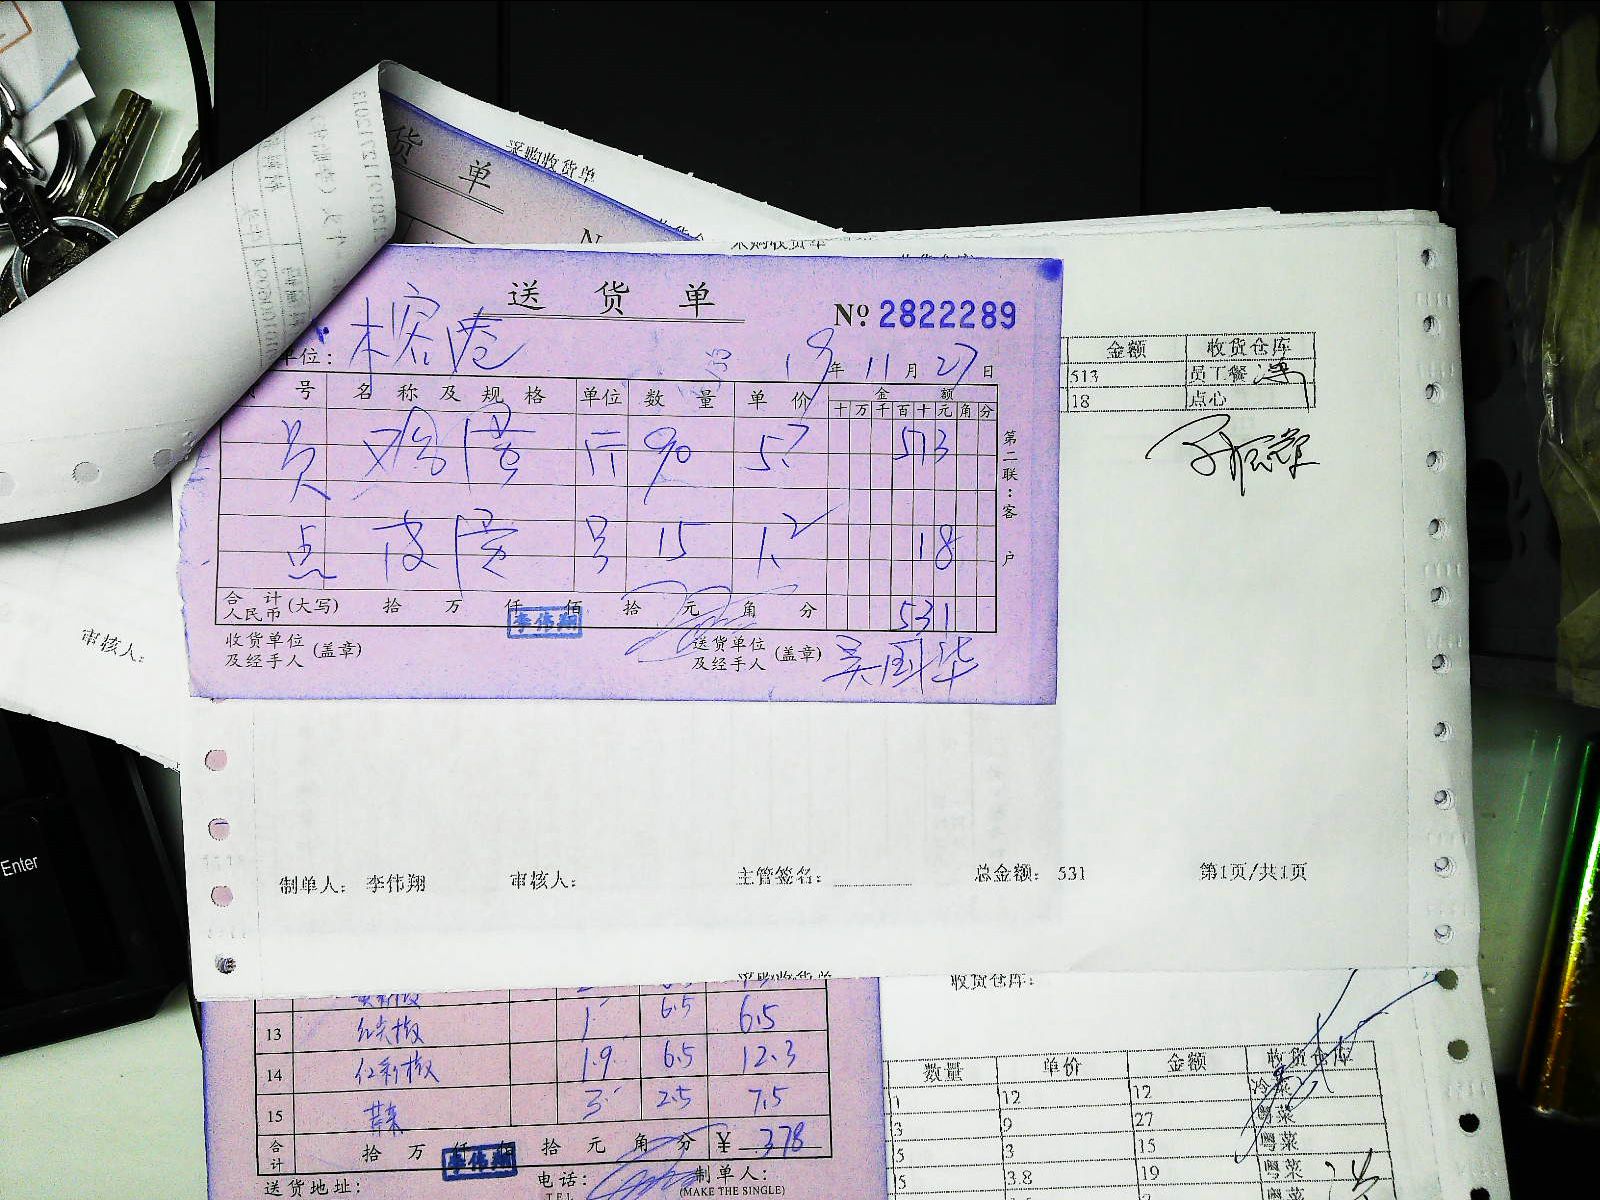 货 单
采购收货单
送 货 单
No 2822289
单位：榕港
19年11月27日
号 名称及规格 单位 数量 单价 金额
十万千百十元角分
员 鸡蛋 斤 90 5.7 513
点 皮蛋 15 1.2 18
合计人民币(大写) 拾 万 仟 佰 拾 元 角 分 531
李伟翔
收货单位及经手人(盖章) 送货单位及经手人(盖章) 吴国华
第二联：客户
金额 收货仓库
513 员工餐
18 点心
审核人：
制单人： 李伟翔 审核人： 主管签名： 总金额： 531 第1页/共1页
Enter
收货仓库：
13 红尖椒 1 6.5 6.5
14 红彩椒 1.9 6.5 12.3
15 3 2.5 7.5
合计 拾 万 仟 佰 拾 元 角 分 ¥ 378
李伟翔
送货地址： 电话： 制单人：
TEL (MAKE THE SINGLE)
数量 单价 金额 收货仓库
1 12 12 冷菜
3 9 27 粤菜
5 3 15 粤菜
5 3.8 19 粤菜